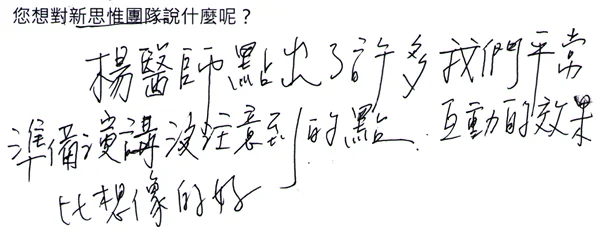 您想對新思惟團隊說什麼呢？
楊醫師點出了許多我們平常
準備演講沒注意到的點. 互動的效果
比想像的好